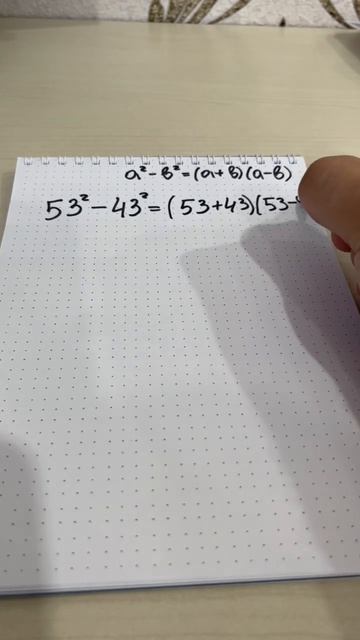 a² - b² = (a + b)(a - b)
53² - 43² = (53+43)(53-